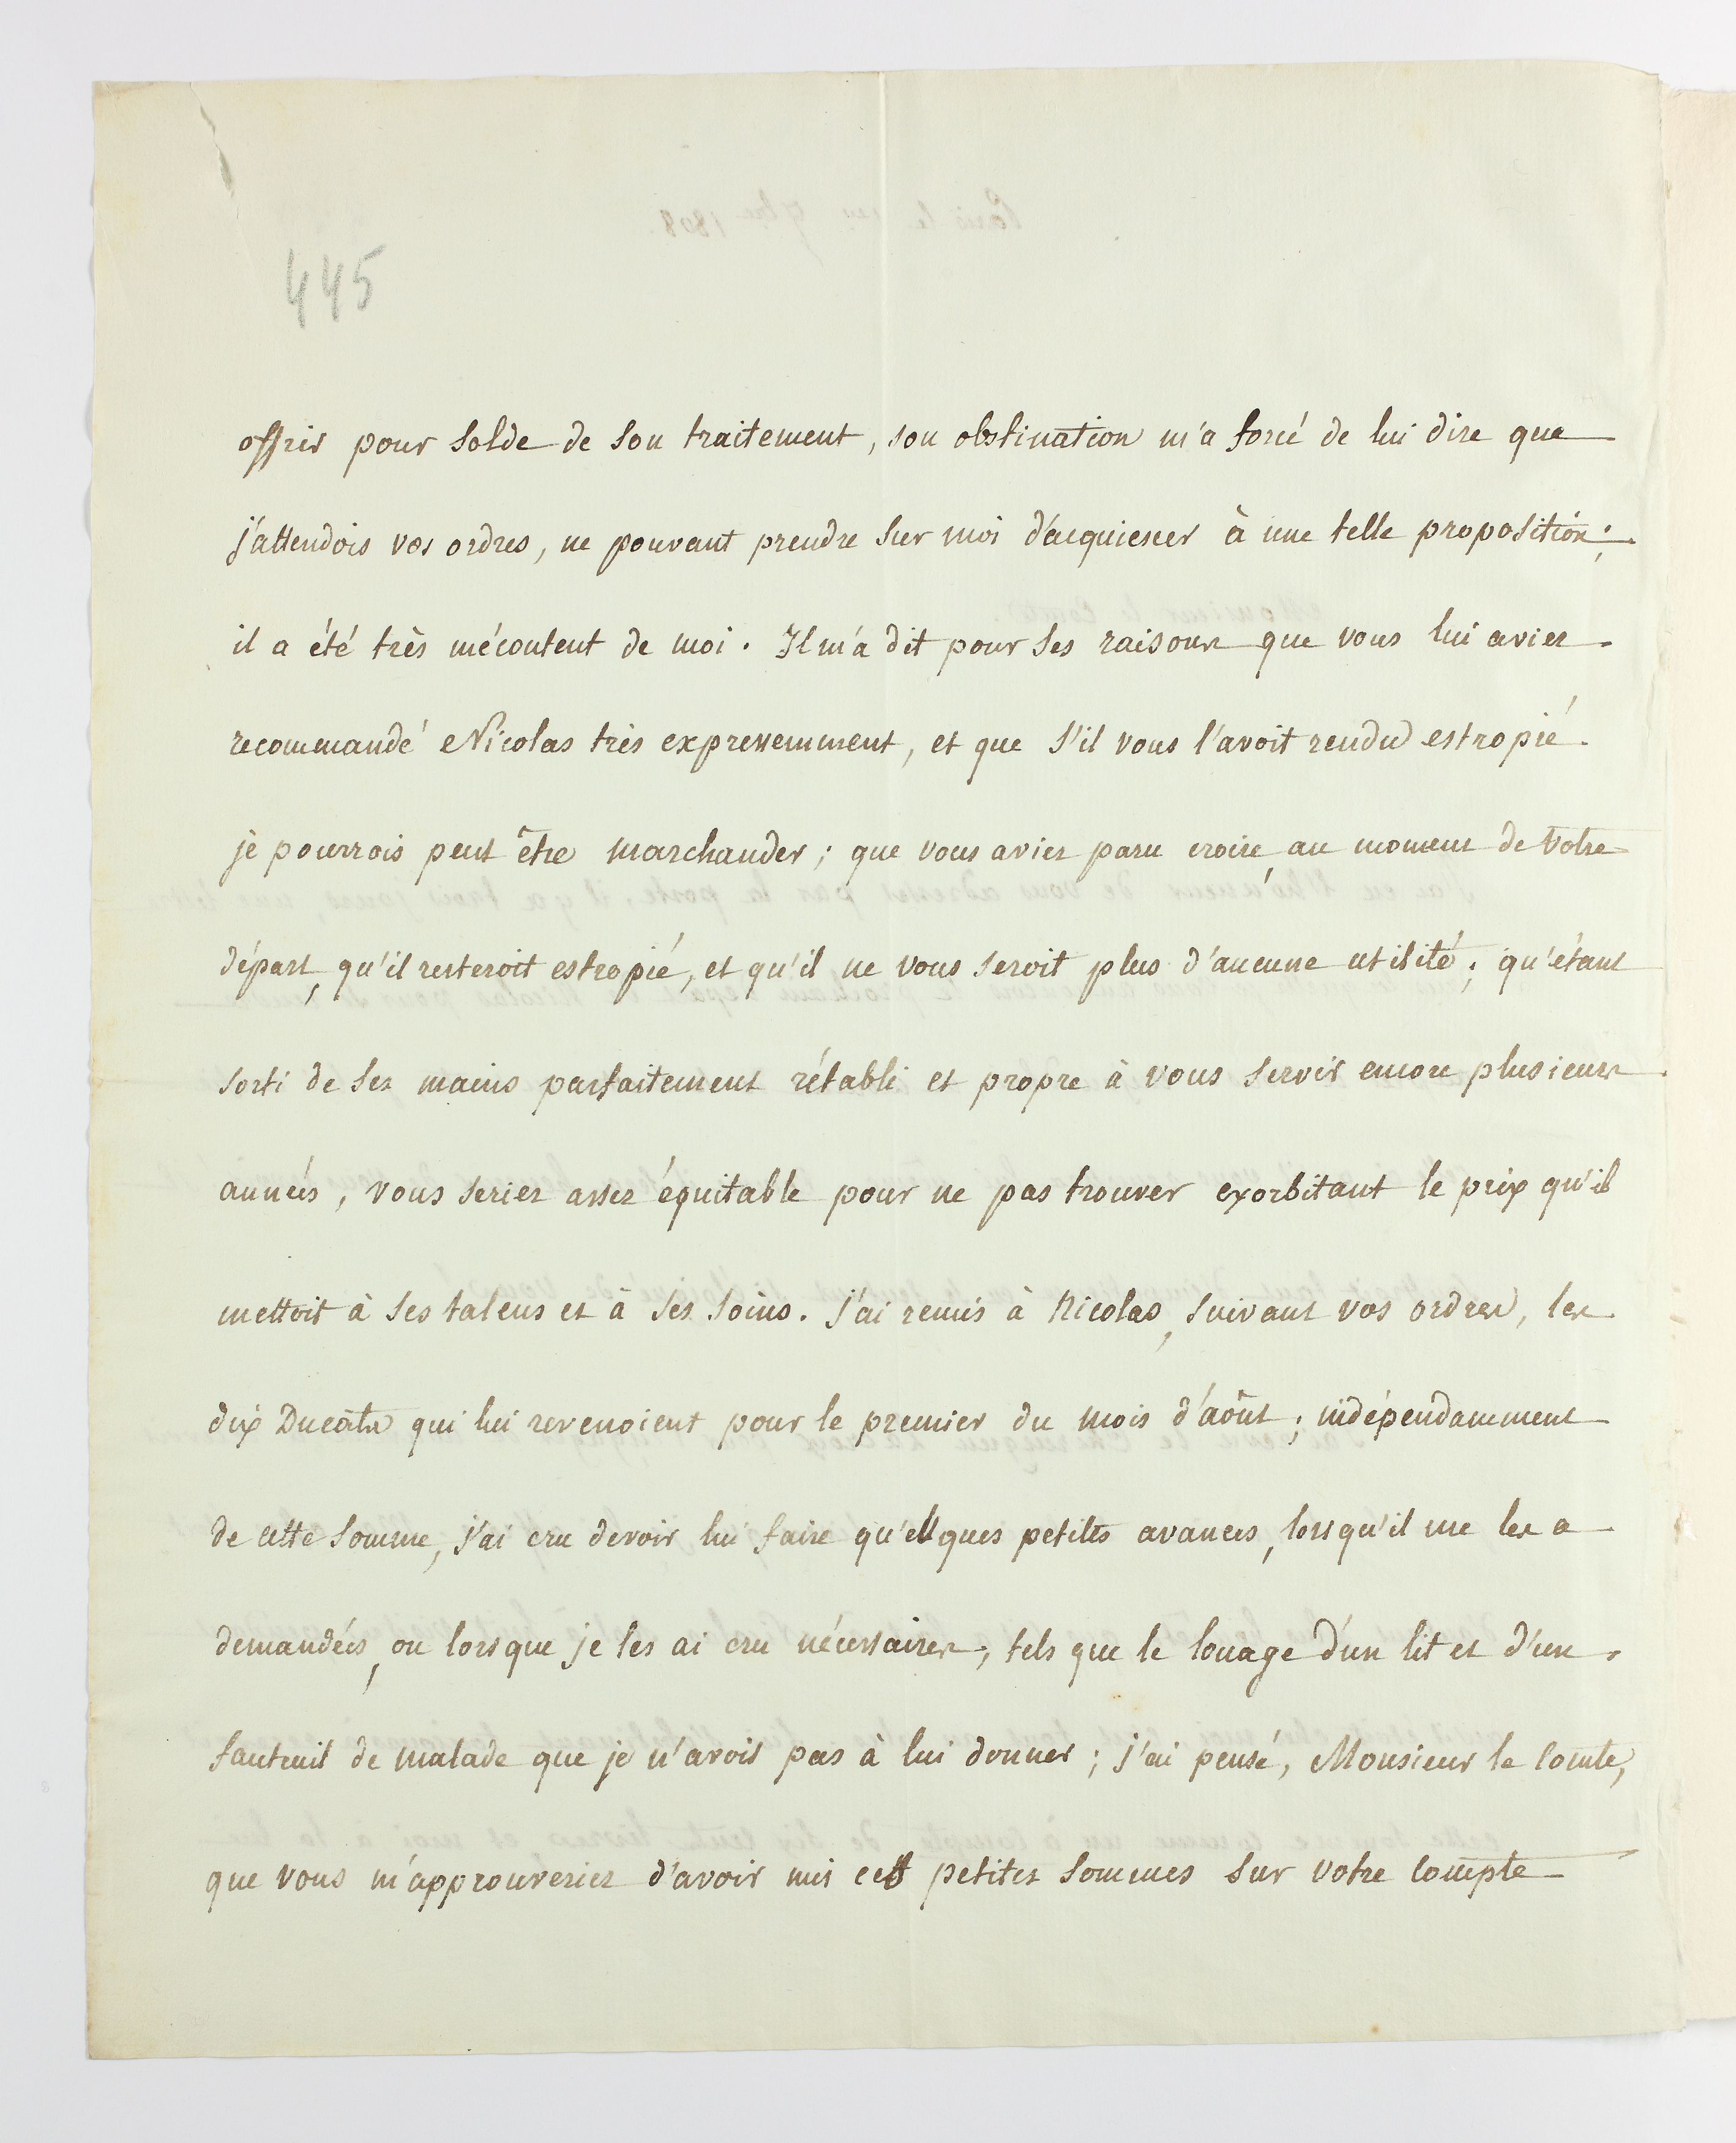 445
offrir pour solde de son traitement, son obstination m'a forcé de lui dire que
j'attendois vos ordres, ne pouvant prendre sur moi d'acquiescer à une telle proposition;
il a été très mécontent de moi. Il m'a dit pour ses raisons que vous lui aviez
recommandé Nicolas très expressemment, et que s'il vous l'avoit rendu estropié
je pourrois peut être marchander; que vous aviez paru croire au moment de votre
départ, qu'il resteroit estropié, et qu'il ne vous seroit plus d'aucune utilité; qu'étant
sorti de ses mains parfaitement rétabli et propre à vous servir encore plusieurs
années, vous seriez assez équitable pour ne pas trouver exorbitant le prix qu'il
mettoit à ses talens et à ses soins. J'ai remis à Nicolas, suivant vos ordres, les
dix Ducats qui lui revenoient pour le premier du mois d'août; indépendamment
de cette somme, j'ai cru devoir lui faire qu'ellques petites avances, lorsqu'il me les a
demandées, ou lorsque je les ai cru nécessaires, tels que le louage d'un lit et d'un
fauteuil de malade que je n'avois pas à lui donner; j'ai pensé, Monsieur le Comte,
que vous m'approuveriez d'avoir mis ces petites sommes sur votre compte